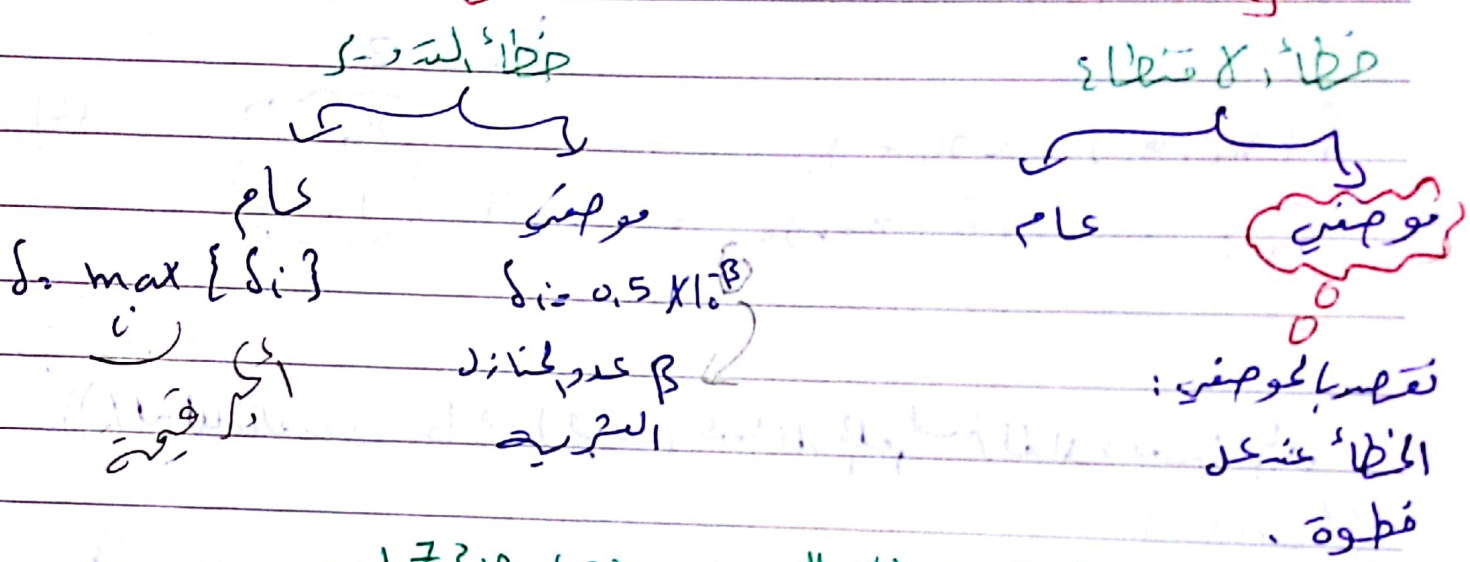 خطأ الاقتطاع
موضعي
عام
نقصد بالموضعي :
الخطأ عند كل
خطوة .
خطأ التدوير
موضعي
عام
δi = 0,5 X10^-β
β عدد المنازل
العشرية
δ = max {δi}
i
أكبر قيمة